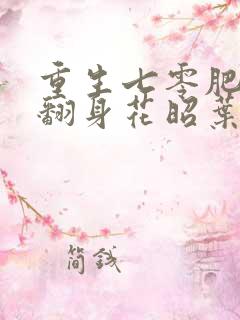 重生七零肥
翻身花昭葉
简钱